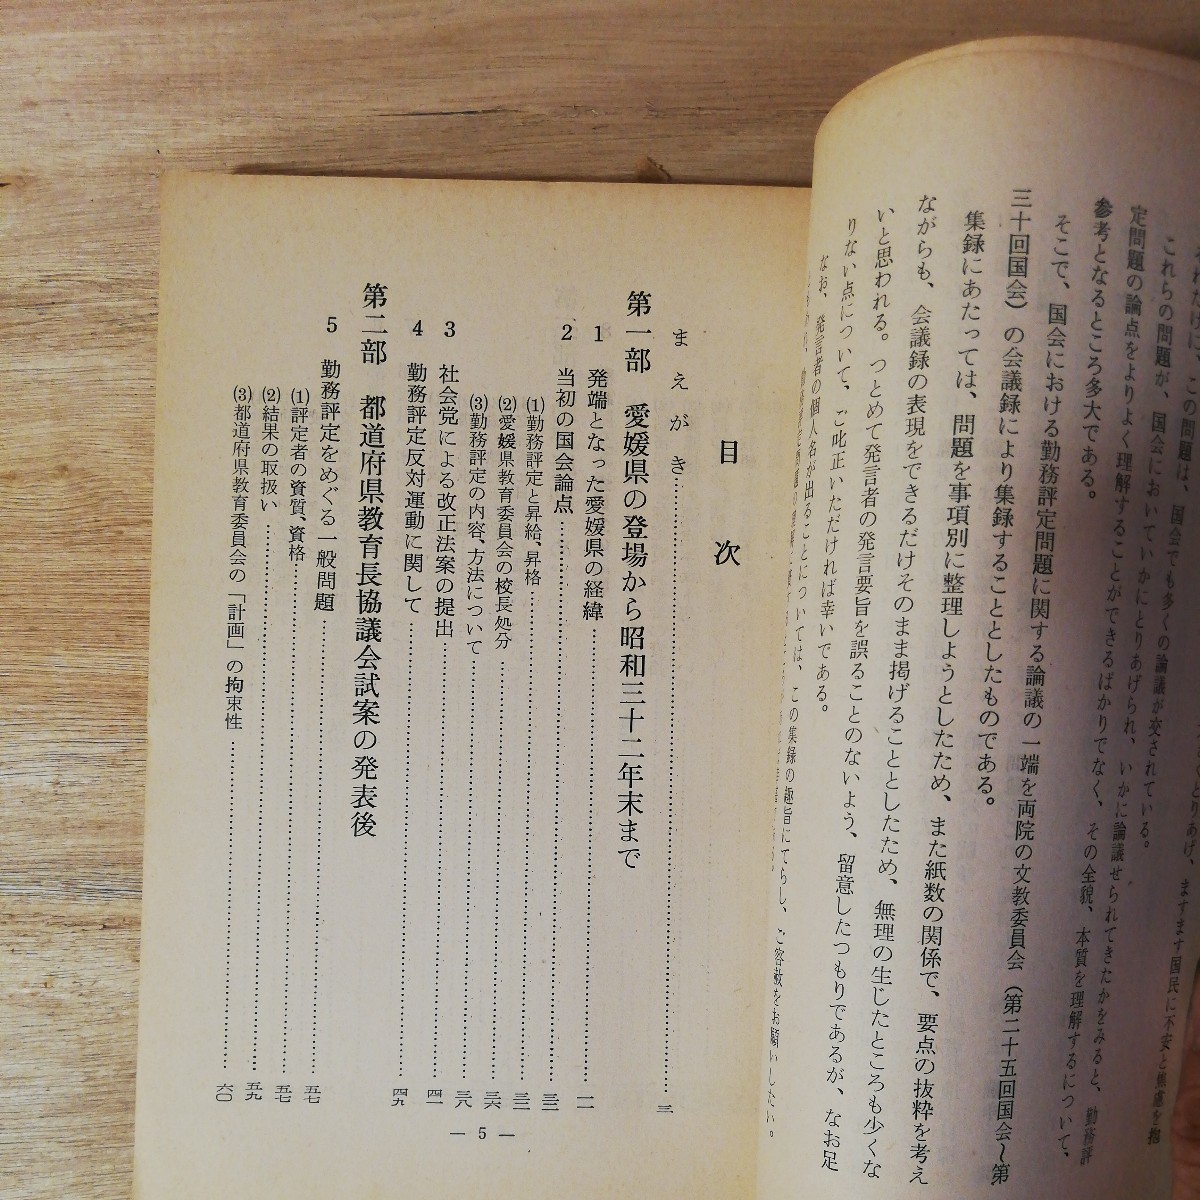 これらの問題が、国会においていかにとりあげられ、いかに論議せられてきたかをみると、勤務評
定問題の論点をよりよく理解することができるばかりでなく、その全貌、本質を理解するについて、
参考となるところ多大である。
そこで、国会における勤務評定問題に関する論議の一端を両院の文教委員会（第二十五回国会〜第
三十回国会）の会議録により集録することとしたものである。
集録にあたっては、問題を事項別に整理しようとしたため、また紙数の関係で、要点の抜粋を考え
ながらも、会議録の表現をできるだけそのまま掲げることとしたため、無理の生じたところも少くな
いと思われる。つとめて発言者の発言要旨を誤ることのないよう、留意したつもりであるが、なお足
りない点について、ご叱正いただければ幸いである。
なお、発言者の個人名が出ることについては、この集録の趣旨にてらし、ご容赦をお願いしたい。
目次
まえがき……三
第一部　愛媛県の登場から昭和三十二年末まで
1　発端となった愛媛県の経緯……一一
2　当初の国会論点……三二
(1)勤務評定と昇給、昇格……三二
(2)愛媛県教育委員会の校長処分……三六
(3)勤務評定の内容、方法について……三八
3　社会党による改正法案の提出……四一
4　勤務評定反対運動に関して……四九
第二部　都道府県教育長協議会試案の発表後
5　勤務評定をめぐる一般問題……五七
(1)評定者の資質、資格……五七
(2)結果の取扱い……五九
(3)都道府県教育委員会の「計画」の拘束性……六〇
— 5 —